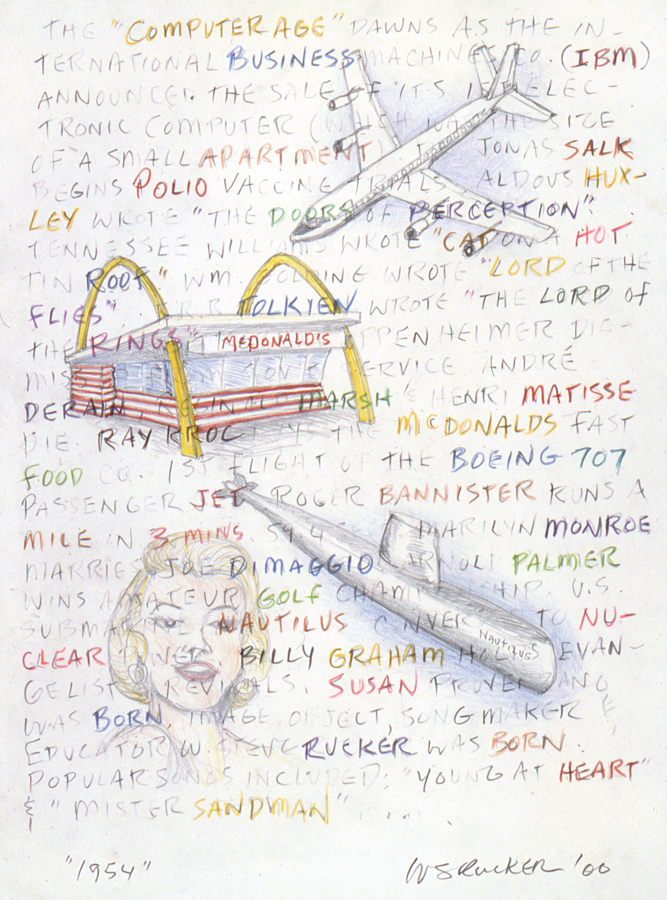 THE "COMPUTER AGE" DAWNS AS THE IN-
TERNATIONAL BUSINESS MACHINES CO. (IBM)
ANNOUNCED THE SALE OF ITS 1ST ELEC-
TRONIC COMPUTER (WHICH WAS THE SIZE
OF A SMALL APARTMENT) JONAS SALK
BEGINS POLIO VACCINE TRIALS. ALDOUS HUX-
LEY WROTE "THE DOORS OF PERCEPTION".
TENNESSEE WILLIAMS WROTE "CAT ON A HOT
TIN ROOF" WM. GOLDING WROTE "LORD OF THE
FLIES". J.R.R. TOLKIEN WROTE "THE LORD OF
THE RINGS". OPPENHEIMER DIS-
MISSED SERVICE ANDRÉ
DERAIN, REGINALD MARSH & HENRI MATISSE
DIE. RAY KROC THE McDONALDS FAST
FOOD CO. 1ST FLIGHT OF THE BOEING 707
PASSENGER JET. ROGER BANNISTER RUNS A
MILE IN 3 MINS. 59.4 SEC. MARILYN MONROE
MARRIES JOE DIMAGGIO. ARNOLD PALMER
WINS AMATEUR GOLF CHAMPIONSHIP. U.S.
SUBMARINE NAUTILUS CONVERTS TO NU-
CLEAR POWER. BILLY GRAHAM HOLDS EVAN-
GELISTIC REVIVALS. SUSAN PROVENZANO
WAS BORN. IMAGE, OBJECT, SONGMAKER &
EDUCATOR W. STEVE RUCKER WAS BORN.
POPULAR SONGS INCLUDED: "YOUNG AT HEART"
& "MISTER SANDMAN" ....
McDONALD'S
NAUTILUS
"1954"
WS RUCKER '00